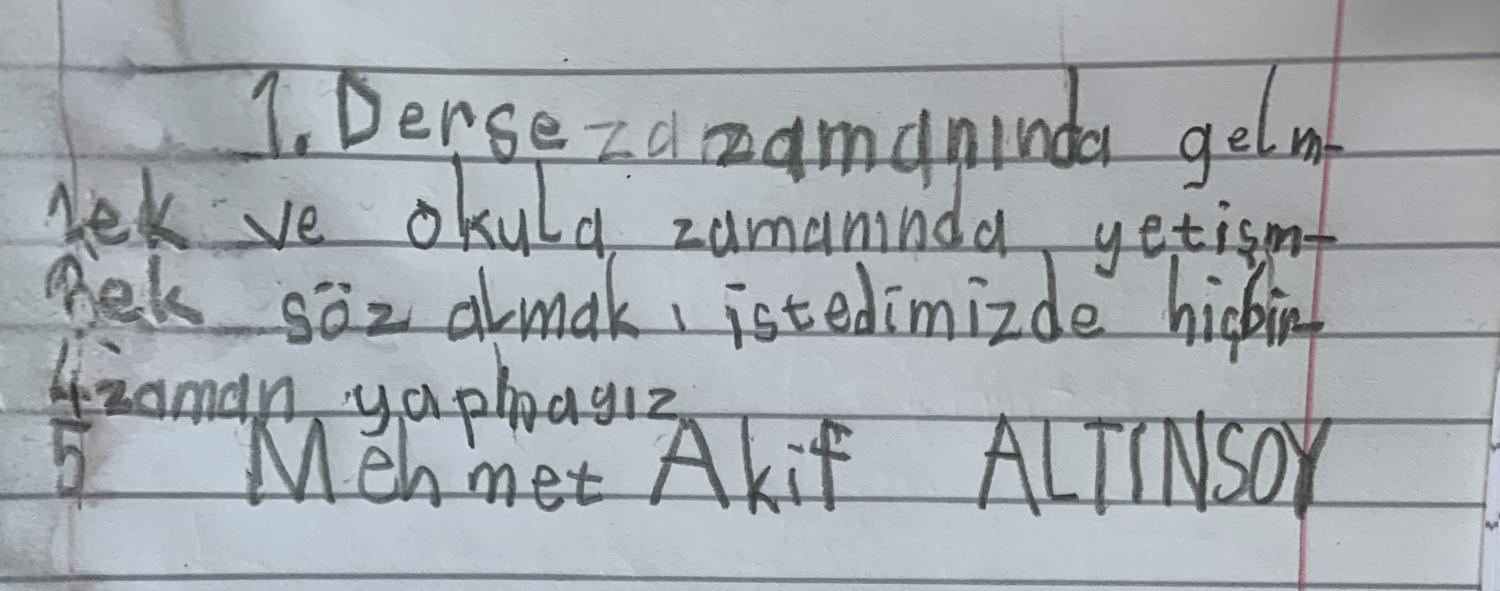 1. Derse za zamanında gelm-
ek ve okula zamanında yetişm-
ek söz almak, istedimizde hiçbir-
zaman yapmayız
5 Mehmet Akif ALTINSOY